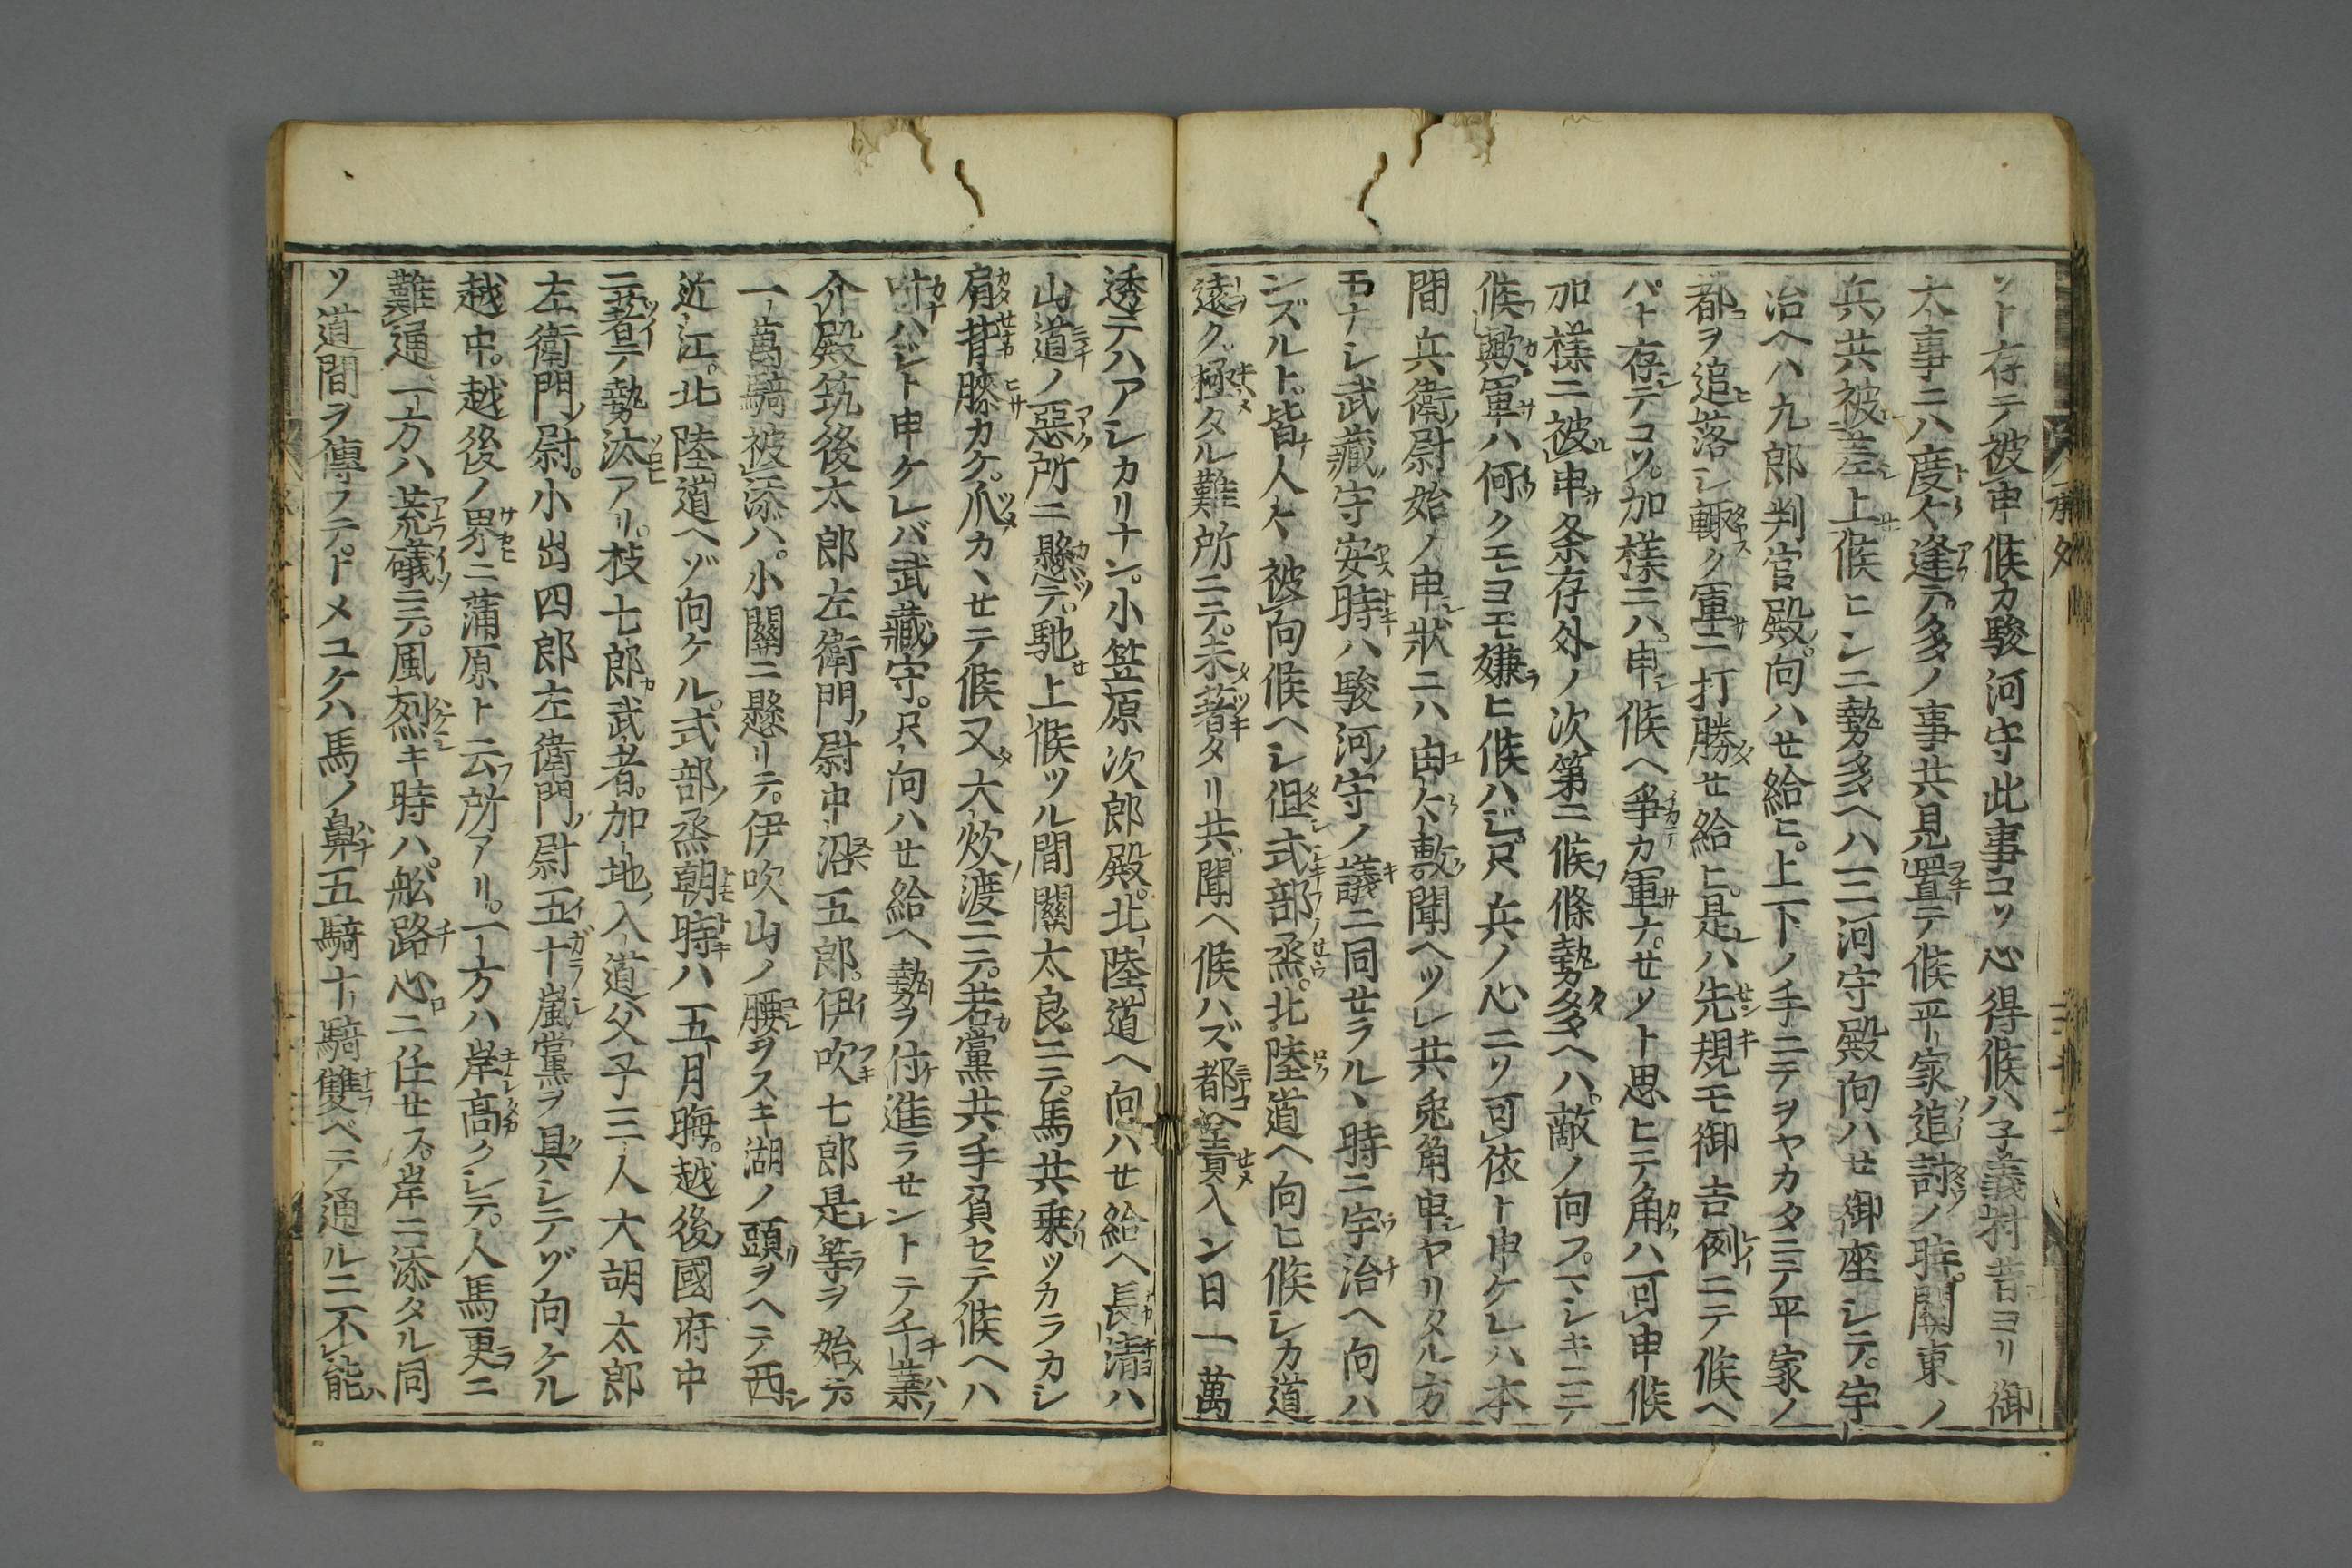 ソト存テ被申候カ駿河守此事コソ心得候ハ子義村昔ヨリ御
大事ニハ度々逢テ多ノ事共見置テ候平家追討ノ時關東ノ
兵共被差上候ヒシニ勢多ヘハ三河守殿向ハせ御座シテ宇
治ヘハ九郎判官殿向ハせ給ヒ上下ノ手ニテヲヤカタニテ平家ノ
都ヲ追落シ輙ク軍ニ打勝せ給ヒ是ハ先規モ御吉例ニテ候ヘ
バト存テコソ加樣ニハ申候ヘ爭カ軍ナせソト思ヒテ角ハ可申候
加樣ニ被申条存外ノ次第ニ候條勢多ヘハ敵ノ向フマシキニテ
候歟軍ハ何クモヨモ嫌ヒ候ハジ只兵ノ心ニソ可依ト申ケレハ本
間兵衛尉始ノ申狀ニハ由々敷聞ヘツレ共兎角申ヤリタル方
モナシ武藏守安時ハ駿河守ノ議ニ同せラルヽ時ニ宇治ヘ向ハ
ンズルト皆人々被向候ヘシ但式部烝北陸道ヘ向ヒ候シカ道
遠ク極タル難所ニテ未着タリ共聞ヘ候ハズ都ヘ責入ン日一萬
透テハアシカリナン小笠原次郎殿北陸道ヘ向ハせ給ヘ長清ハ
山道ノ惡所ニ懸テ馳上候ツル間關太良ニテ馬共乗ツカラカシ
肩背膝カケ爪カヽせテ候又大炊渡ニテ若黨共手負セテ候ヘハ
叶ハジト申ケレバ武藏守只向ハせ給ヘ勢ヲ付進ラせントテ千葉
介殿筑後太郎左衛門尉中沼五郎伊吹七郎是等ヲ始テ
一萬騎被添ハ小關ニ懸リテ伊吹山ノ腰ヲスキ湖ノ頭ヲヘテ西
近江北陸道ヘゾ向ケル式部烝朝時ハ五月晦越後國府中
ニ着テ勢汰アリ枝七郎武者加地入道父子三人大胡太郎
左衛門尉小出四郎左衛門尉五十嵐黨ヲ具シテゾ向ケル
越中越後ノ界ニ蒲原ト云所アリ一方ハ岸高クシテ人馬更ニ
難通一方ハ荒礒ニテ風烈キ時ハ舩路心ニ任せス岸ニ添タル同
ソ道間ヲ傳フテトメユケハ馬ノ鼻五騎十騎雙ベテ通ルニ不能